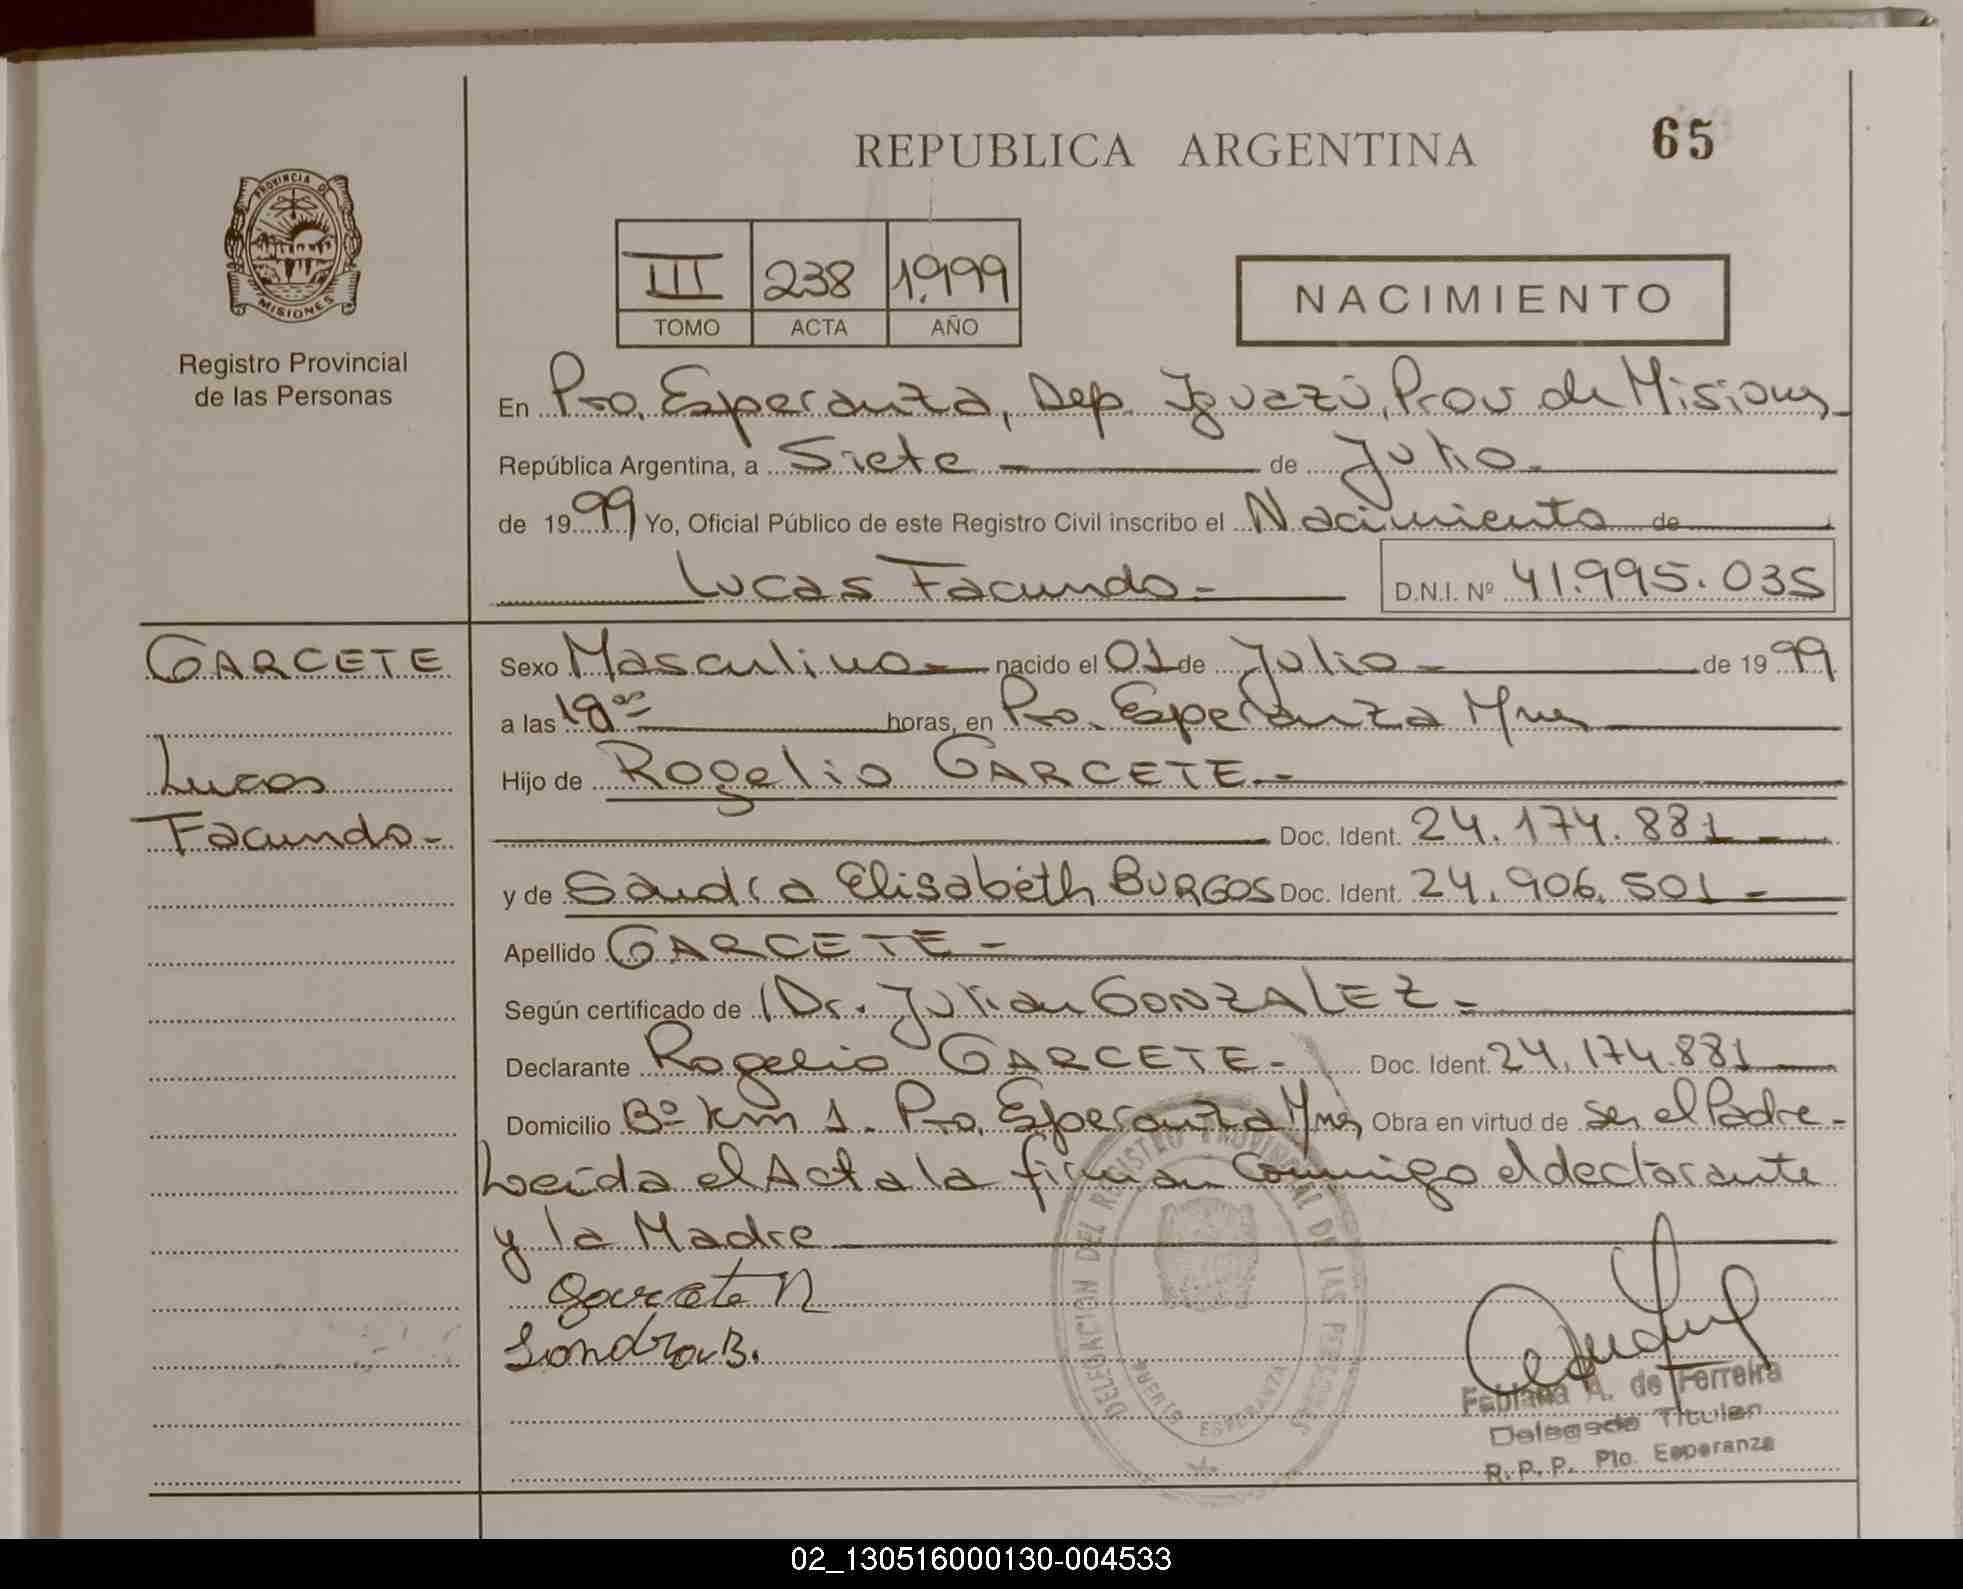 REPUBLICA ARGENTINA
65
PROVINCIA DE
MISIONES
Registro Provincial
de las Personas
III 238 1.999
TOMO ACTA AÑO
NACIMIENTO
En Pto. Esperanza, Dep. Iguazú, Prov de Misiones
República Argentina, a Siete de Julio.
de 1999 Yo, Oficial Público de este Registro Civil inscribo el Nacimiento de
Lucas Facundo-
D.N.I. Nº 41.995.035
GARCETE
Lucas
Facundo-
Sexo Masculino- nacido el 01 de Julio- de 1999
a las horas, en Pto. Esperanza Mnes
Hijo de Rogelio GARCETE-
Doc. Ident. 24.174.881-
y de Sandra Elisabeth BURGOS Doc. Ident. 24.906.501-
Apellido GARCETE-
Según certificado de Dr. Julian GONZALEZ-
Declarante Rogelio GARCETE- Doc. Ident. 24.174.881
Domicilio Bº Km 1. Pto. Esperanza Mnes Obra en virtud de ser el Padre-
Leída el Acta la firman conmigo el declarante
y la Madre
Garcete R
Sandra B.
DELEGACION DEL REGISTRO PROVINCIAL DE LAS PERSONAS
PUERTO ESPERANZA
Fabiana A. de Ferreira
Delegada Titular
R.P.P. Pto. Esperanza
02_130516000130-004533